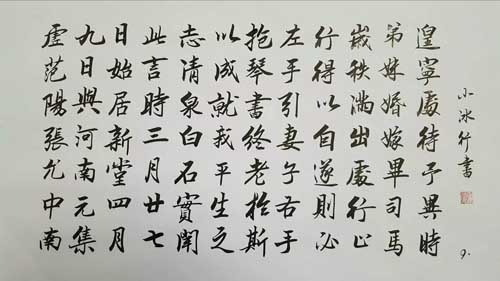 遑寧處待予異時
弟妹婚嫁畢司馬
嵗秩滿出處行止
行得以自遂則必
左手引妻子右手
抱琴書終老於斯
以成就我平生之
志清泉白石實聞
此言時三月廿七
日始居新堂四月
九日與河南元集
虛范陽張允中南
小冰行書
9.